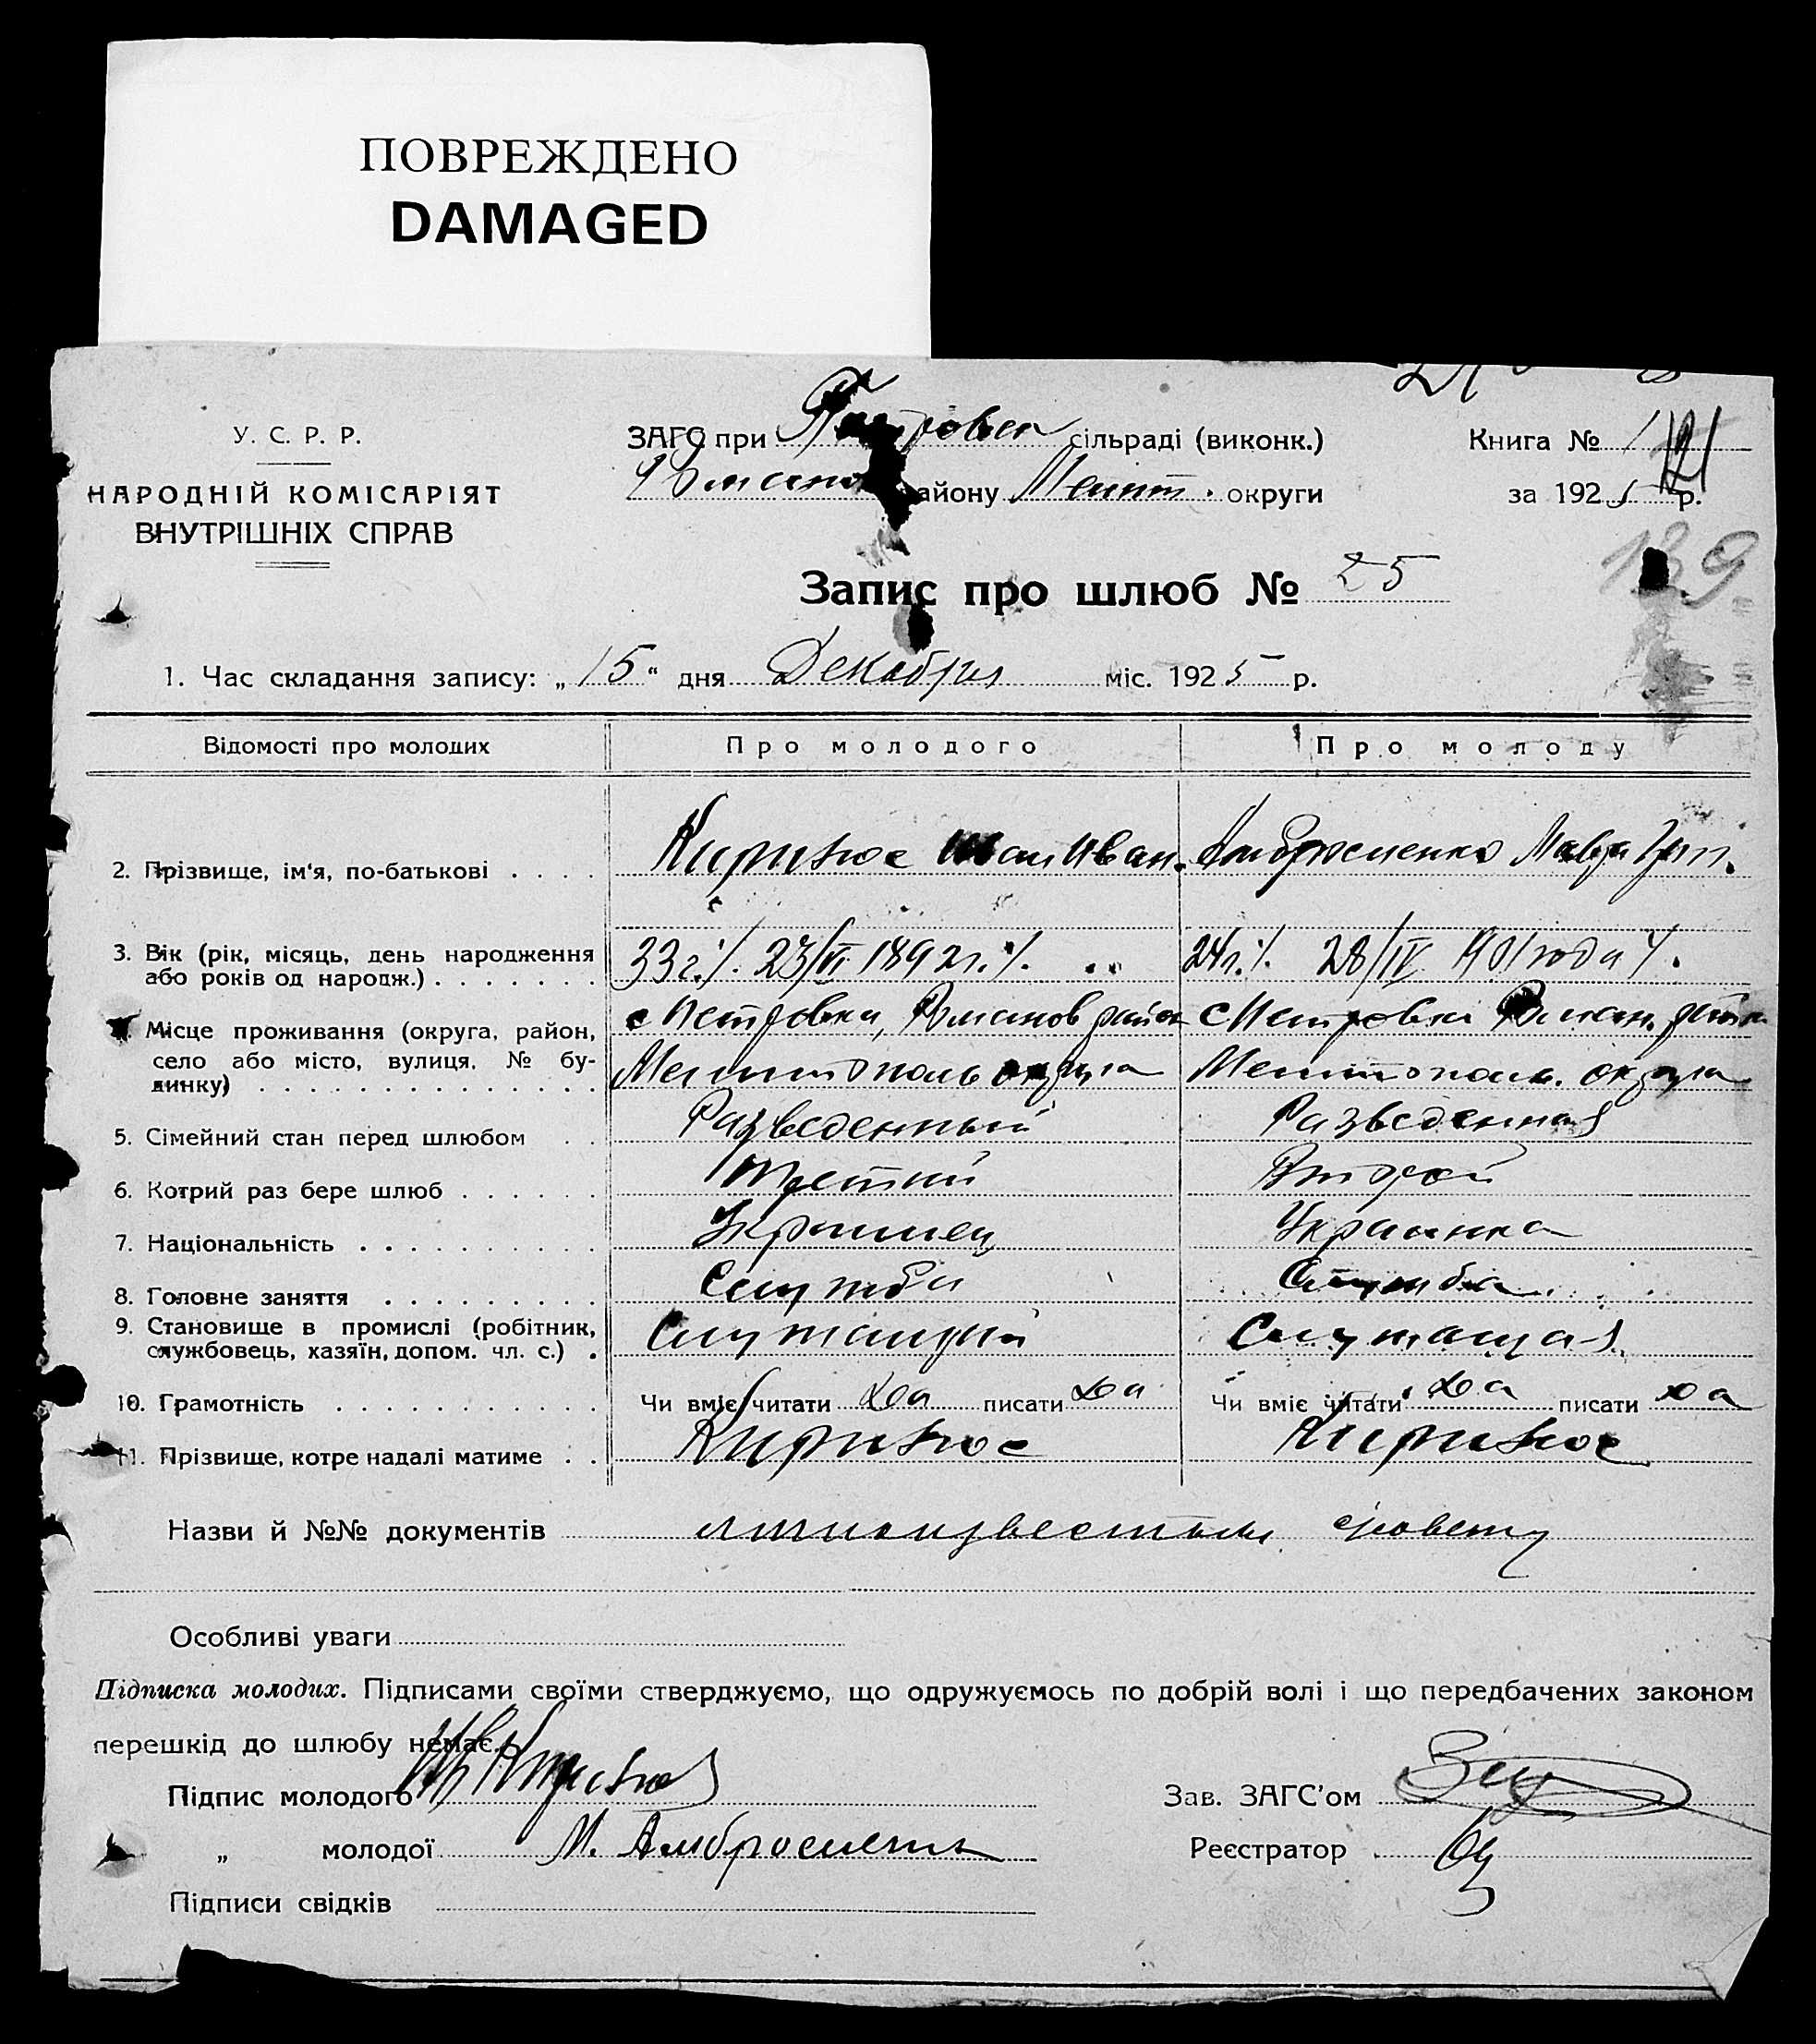 ПОВРЕЖДЕНО
DAMAGED
У. С. Р. Р.
НАРОДНІЙ КОМІСАРІЯТ
ВНУТРІШНІХ СПРАВ
ЗАГС при Петровск сільраді (виконк.)
району Мелит. округи
Книга № 1
за 1925 р.
121
139
Запис про шлюб № 25
1. Час складання запису: „15“ дня Декабря міс. 1925 р.
Відомості про молодих Про молодого Про молоду
2. Прізвище, ім'я, по-батькові . . . . Иван Иван. Амбросиенко Мавра
3. Вік (рік, місяць, день народження або років од народж.) . . . . . . . 33 г. 23/VI 1892 г. 24 г. 28/IV 1901 года
4. Місце проживання (округа, район, село або місто, вулиця, № будинку) . . . . с Петровка, Романов район Мелитополь округа с Петровка Роман. район Мелитополь. округа
5. Сімейний стан перед шлюбом . . Разведенный Разведенная
6. Котрий раз бере шлюб . . . . . . Третий Второй
7. Національність . . . . . . . . . . Украинец Украинка
8. Головне заняття . . . . . . . . . Служба Служба
9. Становище в промислі (робітник, службовець, хазяїн, допом. чл. с.) . Служащий Служащая
10. Грамотність . . . . . . . . . . . Чи вміє читати да писати да Чи вміє читати да писати да
11. Прізвище, котре надалі матиме . .
Назви й №№ документів
Особливі уваги
Підписка молодих. Підписами своїми стверджуємо, що одружуємось по добрій волі і що передбачених законом
перешкід до шлюбу немає.
Підпис молодого
Зав. ЗАГС'ом
„ молодої М. Амбросиенко
Реєстратор
Підписи свідків